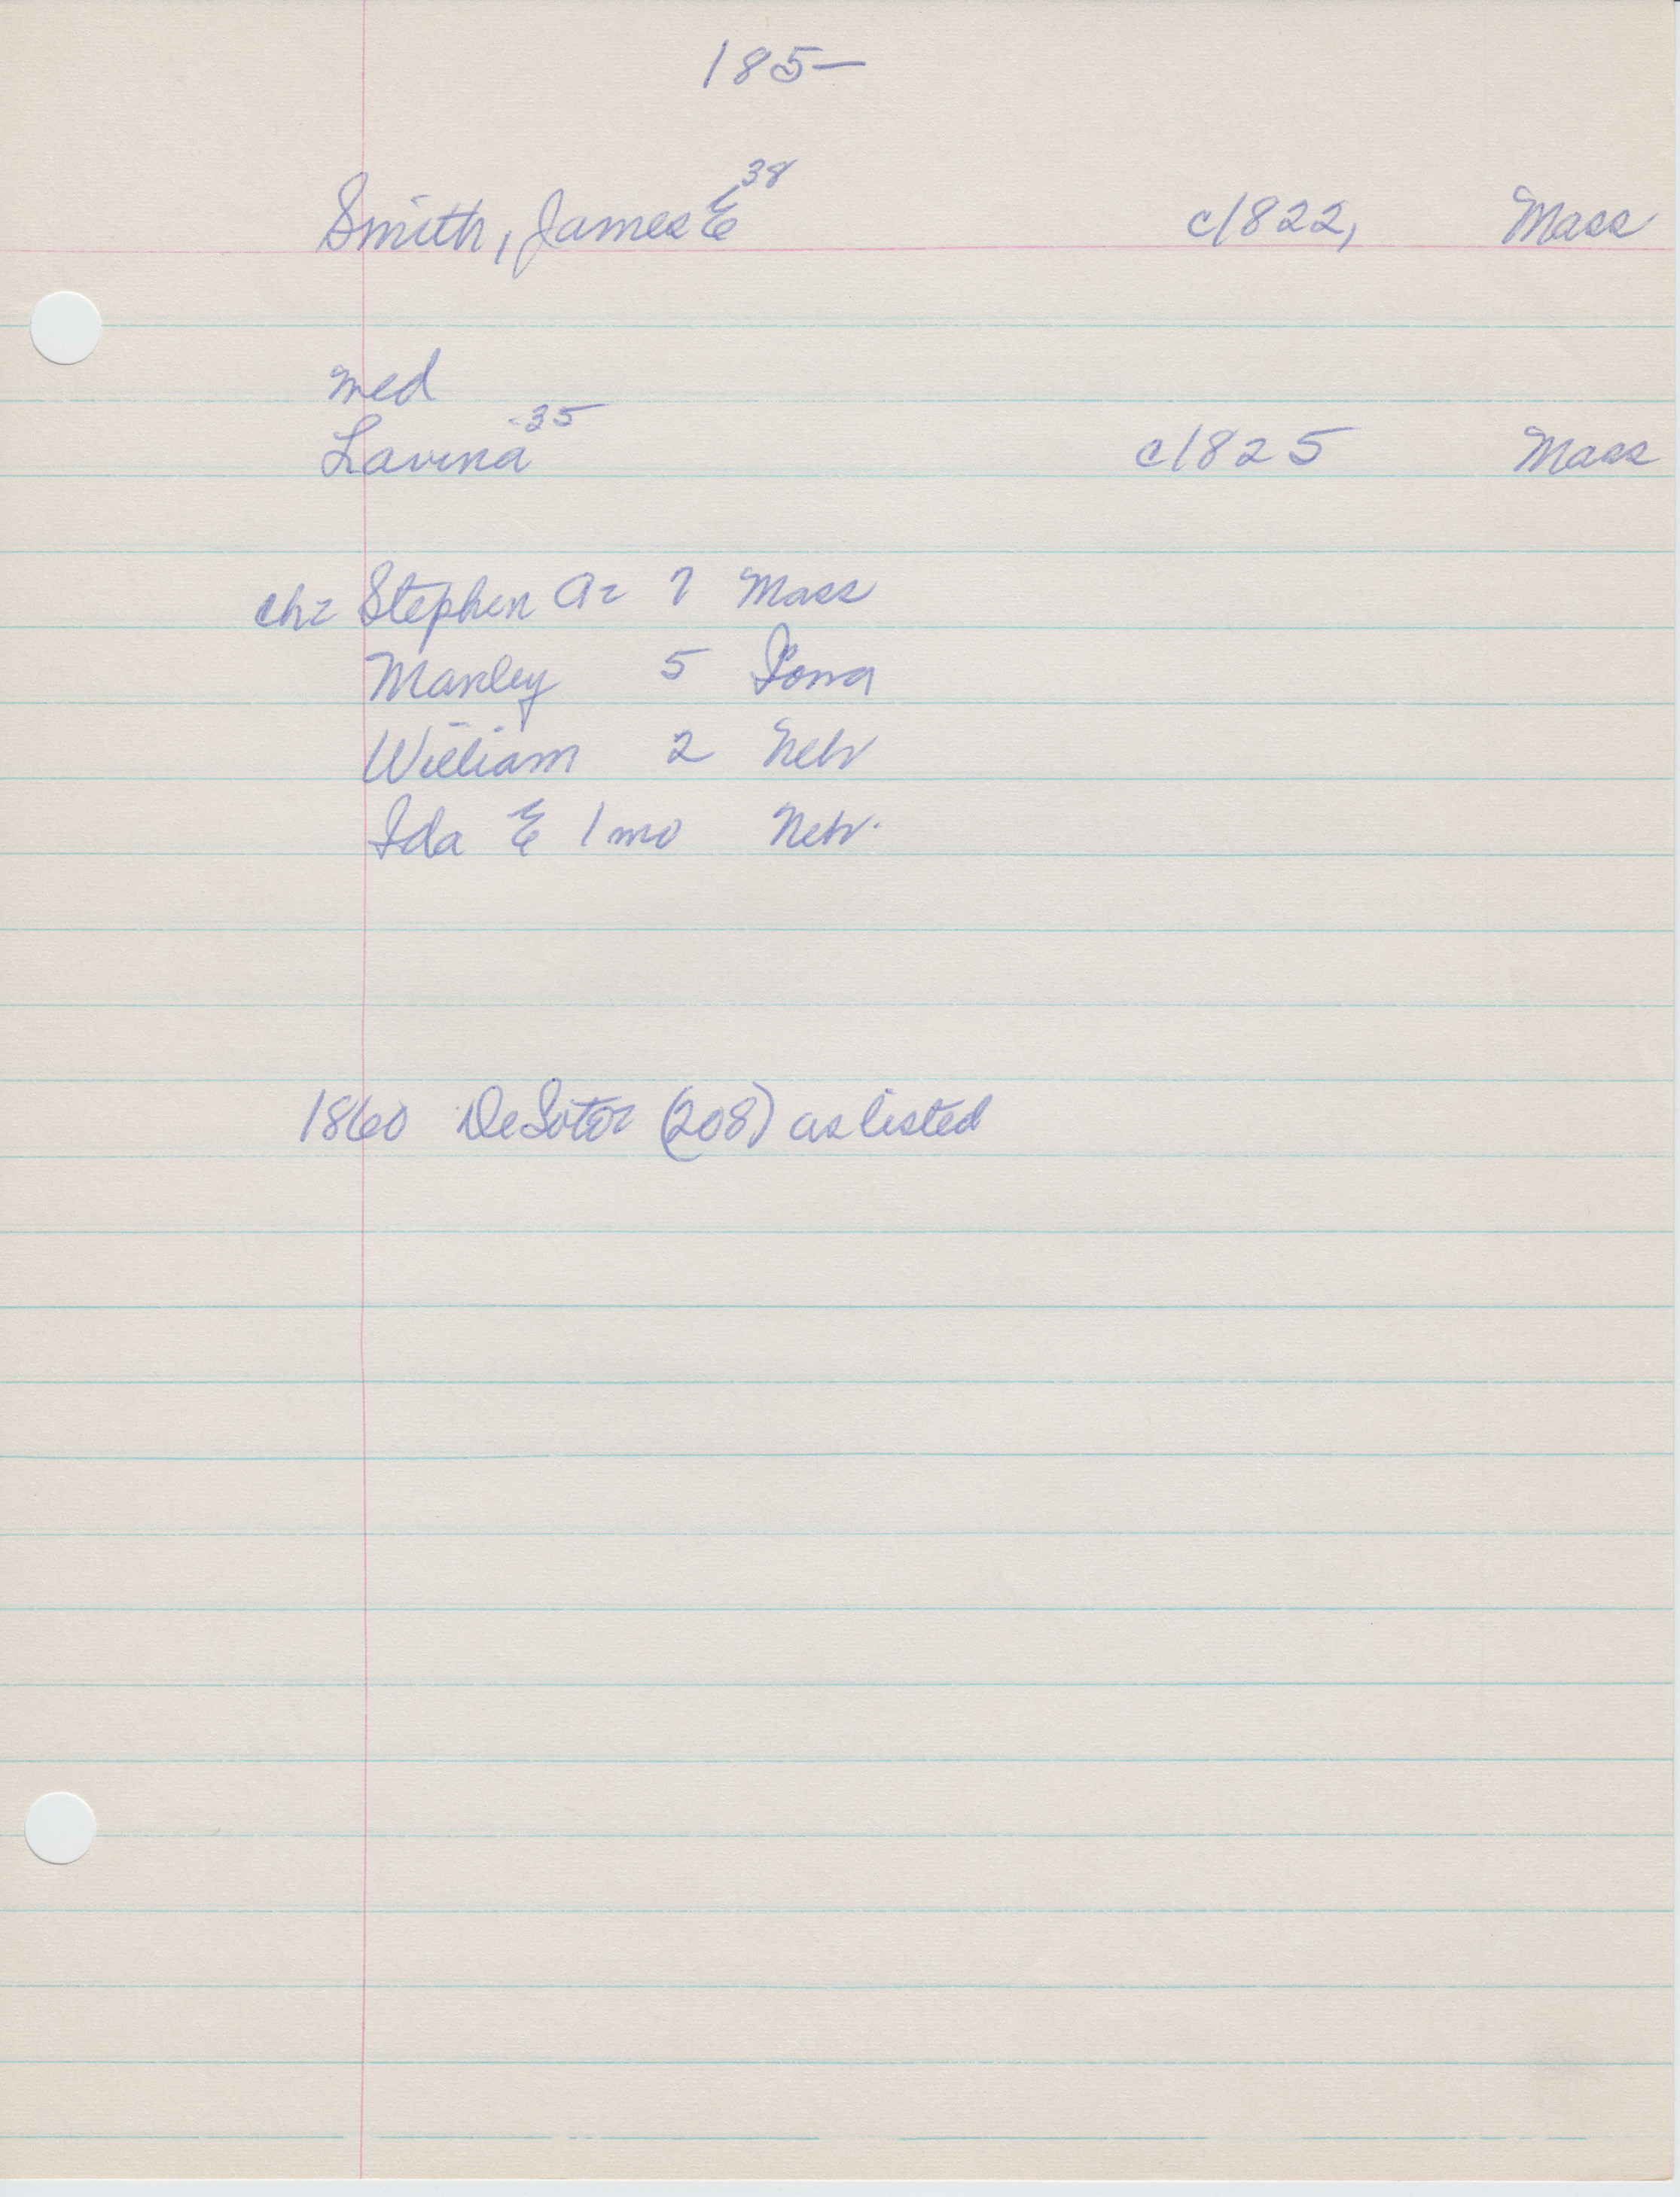 185—
Smith, James E 38 c/822, Mass
med
Lavina -35 c/825 Mass
ch= Stephen A= 7 Mass
Manley 5 Iowa
William 2 Nebr
Ida E 1 mo Nebr.
1860 DeSoto= (208) as listed